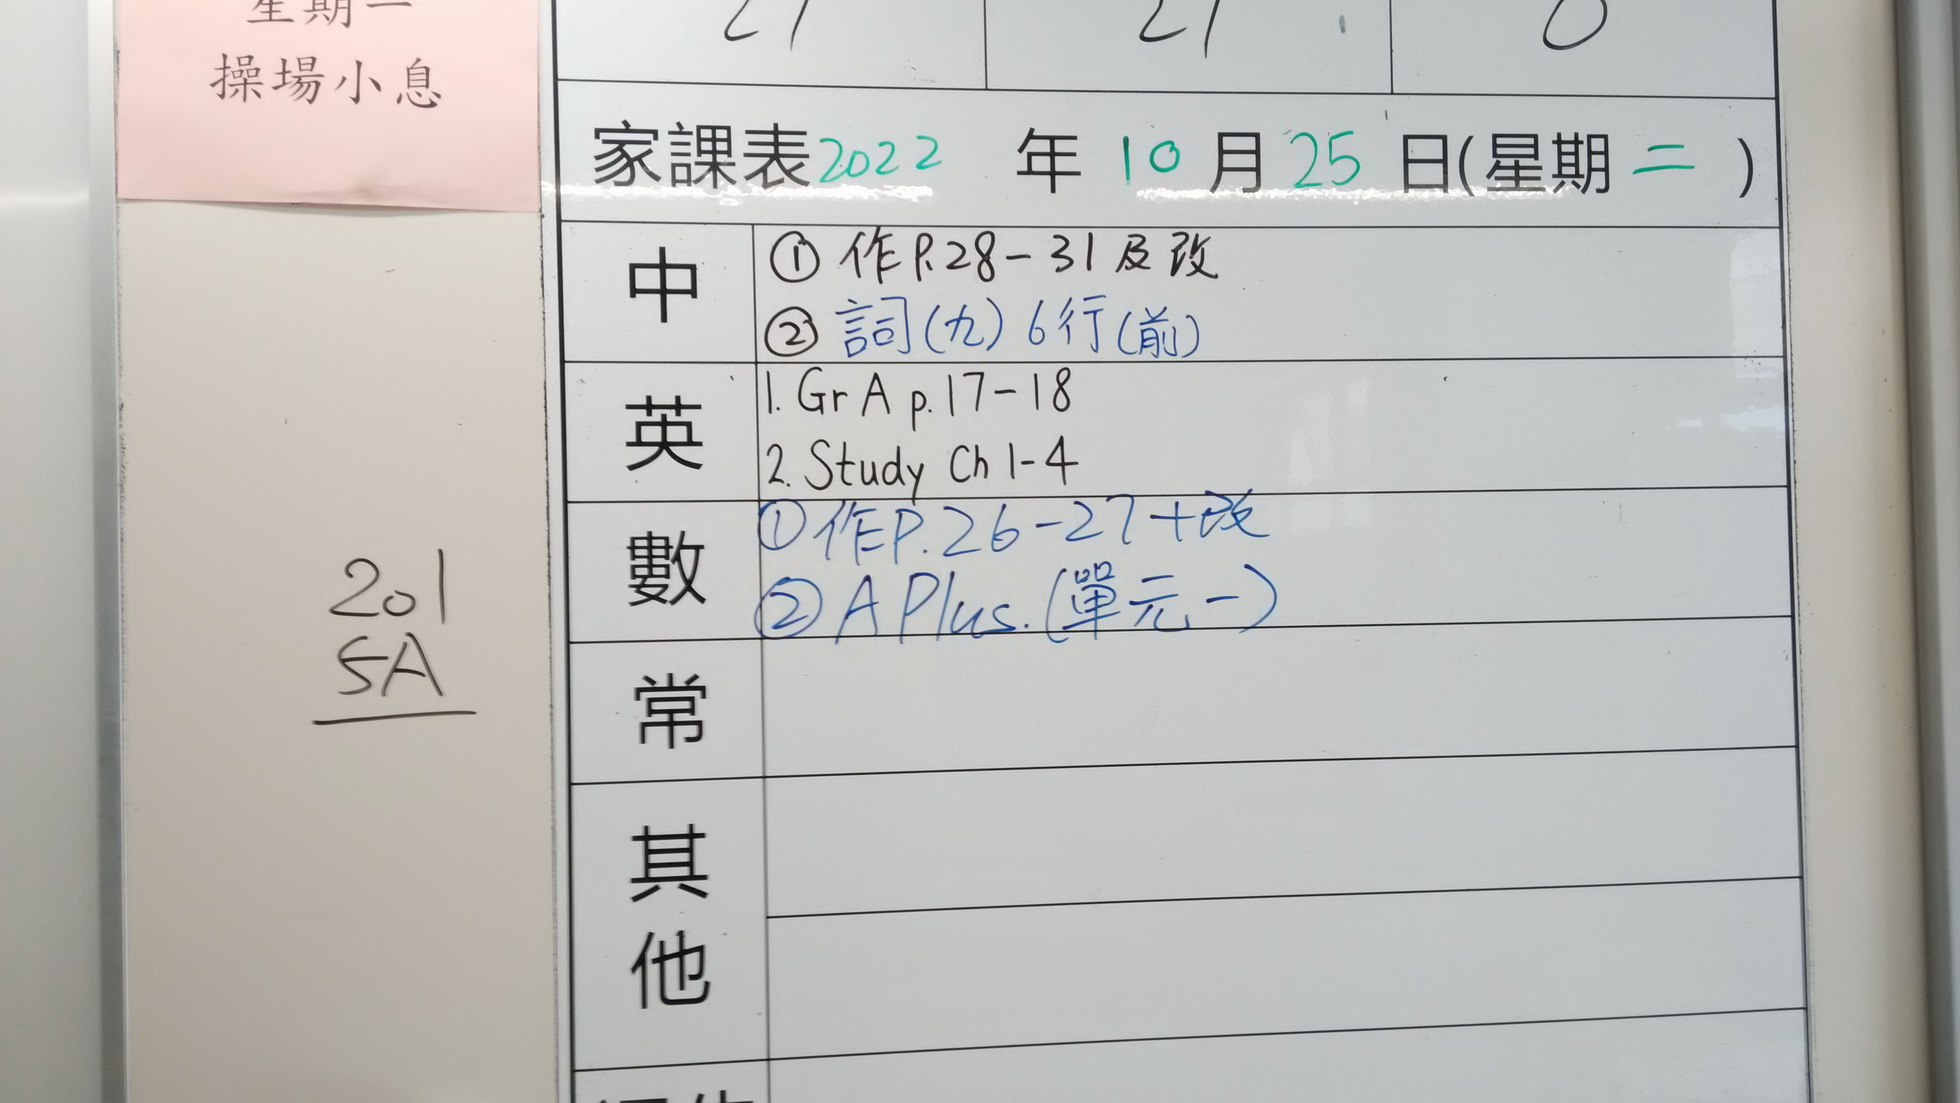 星期一
操場小息
21 21 0
家課表2022 年 10 月 25 日(星期 二 )
中
① 作P.28-31及改
② 詞(九) 6行(前)
英
1. Gr A p.17-18
2. Study Ch 1-4
數
① 作P.26-27+改
② A Plus.(單元一)
常
其他
201
5A